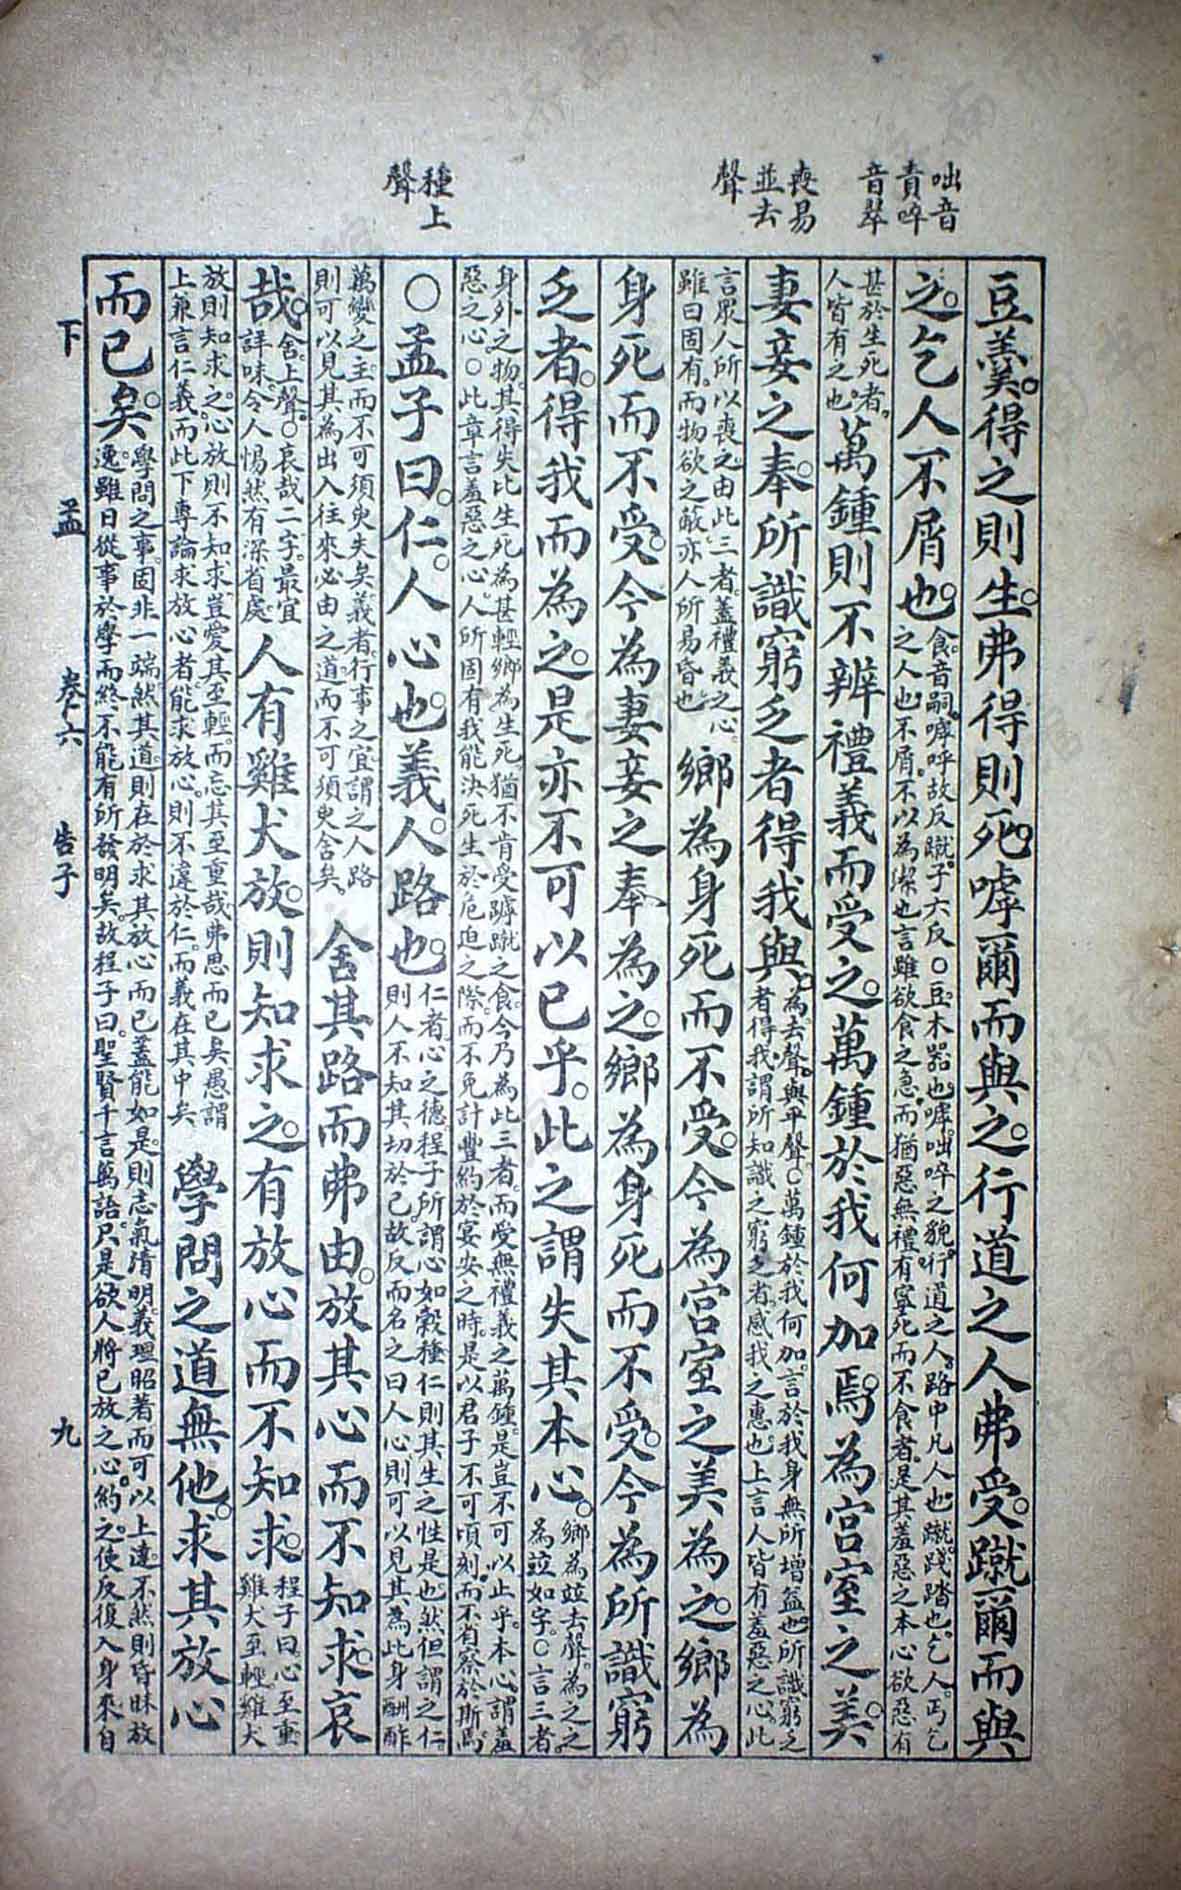 咄音
責啐
音翠
喪易
並去
聲
種上
聲
豆羹。得之則生。弗得則死。嘑爾而與之。行道之人弗受。蹴爾而與
之。乞人不屑也。
食。音嗣。嘑呼故反。蹴。子六反。○豆。木器也。嘑。咄啐之貌。行道之人。路中凡人也。蹴。踐踏也。乞人。丐乞
之人也。不屑。不以為潔也。言雖欲食之急。而猶惡無禮。有寧死而不食者。是其羞惡之本心。欲惡有
甚於生死者。
人皆有之也。
萬鍾則不辨禮義而受之。萬鍾於我何加焉。為宮室之美。
妻妾之奉。所識窮乏者得我與。
為。去聲。與平聲。○萬鍾於我何加。言於我身無所增益也。所識窮乏
者得我。謂所知識之窮乏者。感我之惠也。上言人皆有羞惡之心。此
言眾人所以喪之。由此三者。蓋禮義之心。
雖曰固有。而物欲之蔽。亦人所易昏也。
鄉為身死而不受。今為宮室之美為之。鄉為
身死而不受。今為妻妾之奉為之。鄉為身死而不受。今為所識窮
乏者。得我而為之。是亦不可以已乎。此之謂失其本心。
鄉為並去聲。為之之
為並如字。○言三者。
身外之物。其得失比生死為甚輕。鄉為生死。猶不肯受嘑蹴之食。今乃為此三者。而受無禮義之萬鍾。是豈不可以止乎。本心。謂羞
惡之心。○此章言羞惡之心。人所固有。我能決死生於危迫之際。而不免計豐約於宴安之時。是以君子不可頃刻。而不省察於斯焉。
○孟子曰。仁。人心也。義。人路也。
仁者心之德。程子所謂心如穀種。仁則其生之性是也。然但謂之仁。
則人不知其切於己。故反而名之曰人心。則可以見其為此身酬酢
萬變之主。而不可須臾失矣。義者。行事之宜。謂之人路
則可以見其為出入往來必由之道。而不可須臾舍矣。
舍其路而弗由。放其心而不知求。哀
哉。
舍。上聲。○哀哉二字。最宜
詳味。令人惕然有深省處。
人有雞犬放。則知求之。有放心而不知求。
程子曰。心至重。
雞犬至輕。雞犬
放則知求之。心放則不知求。豈愛其至輕而忘其至重哉。弗思而已矣。愚謂
上兼言仁義。而此下專論求放心者。能求放心。則不違於仁。而義在其中矣
學問之道無他。求其放心
而已矣。
學問之事。固非一端。然其道。則在於求其放心而已。蓋能如是。則志氣清明。義理昭著。而可以上達。不然則昏昧放
逸。雖日從事於學。而終不能有所發明矣。故程子曰。聖賢千言萬語。只是欲人將已放之心。約之。使反復入身來。自
下 孟 卷六 告子 九